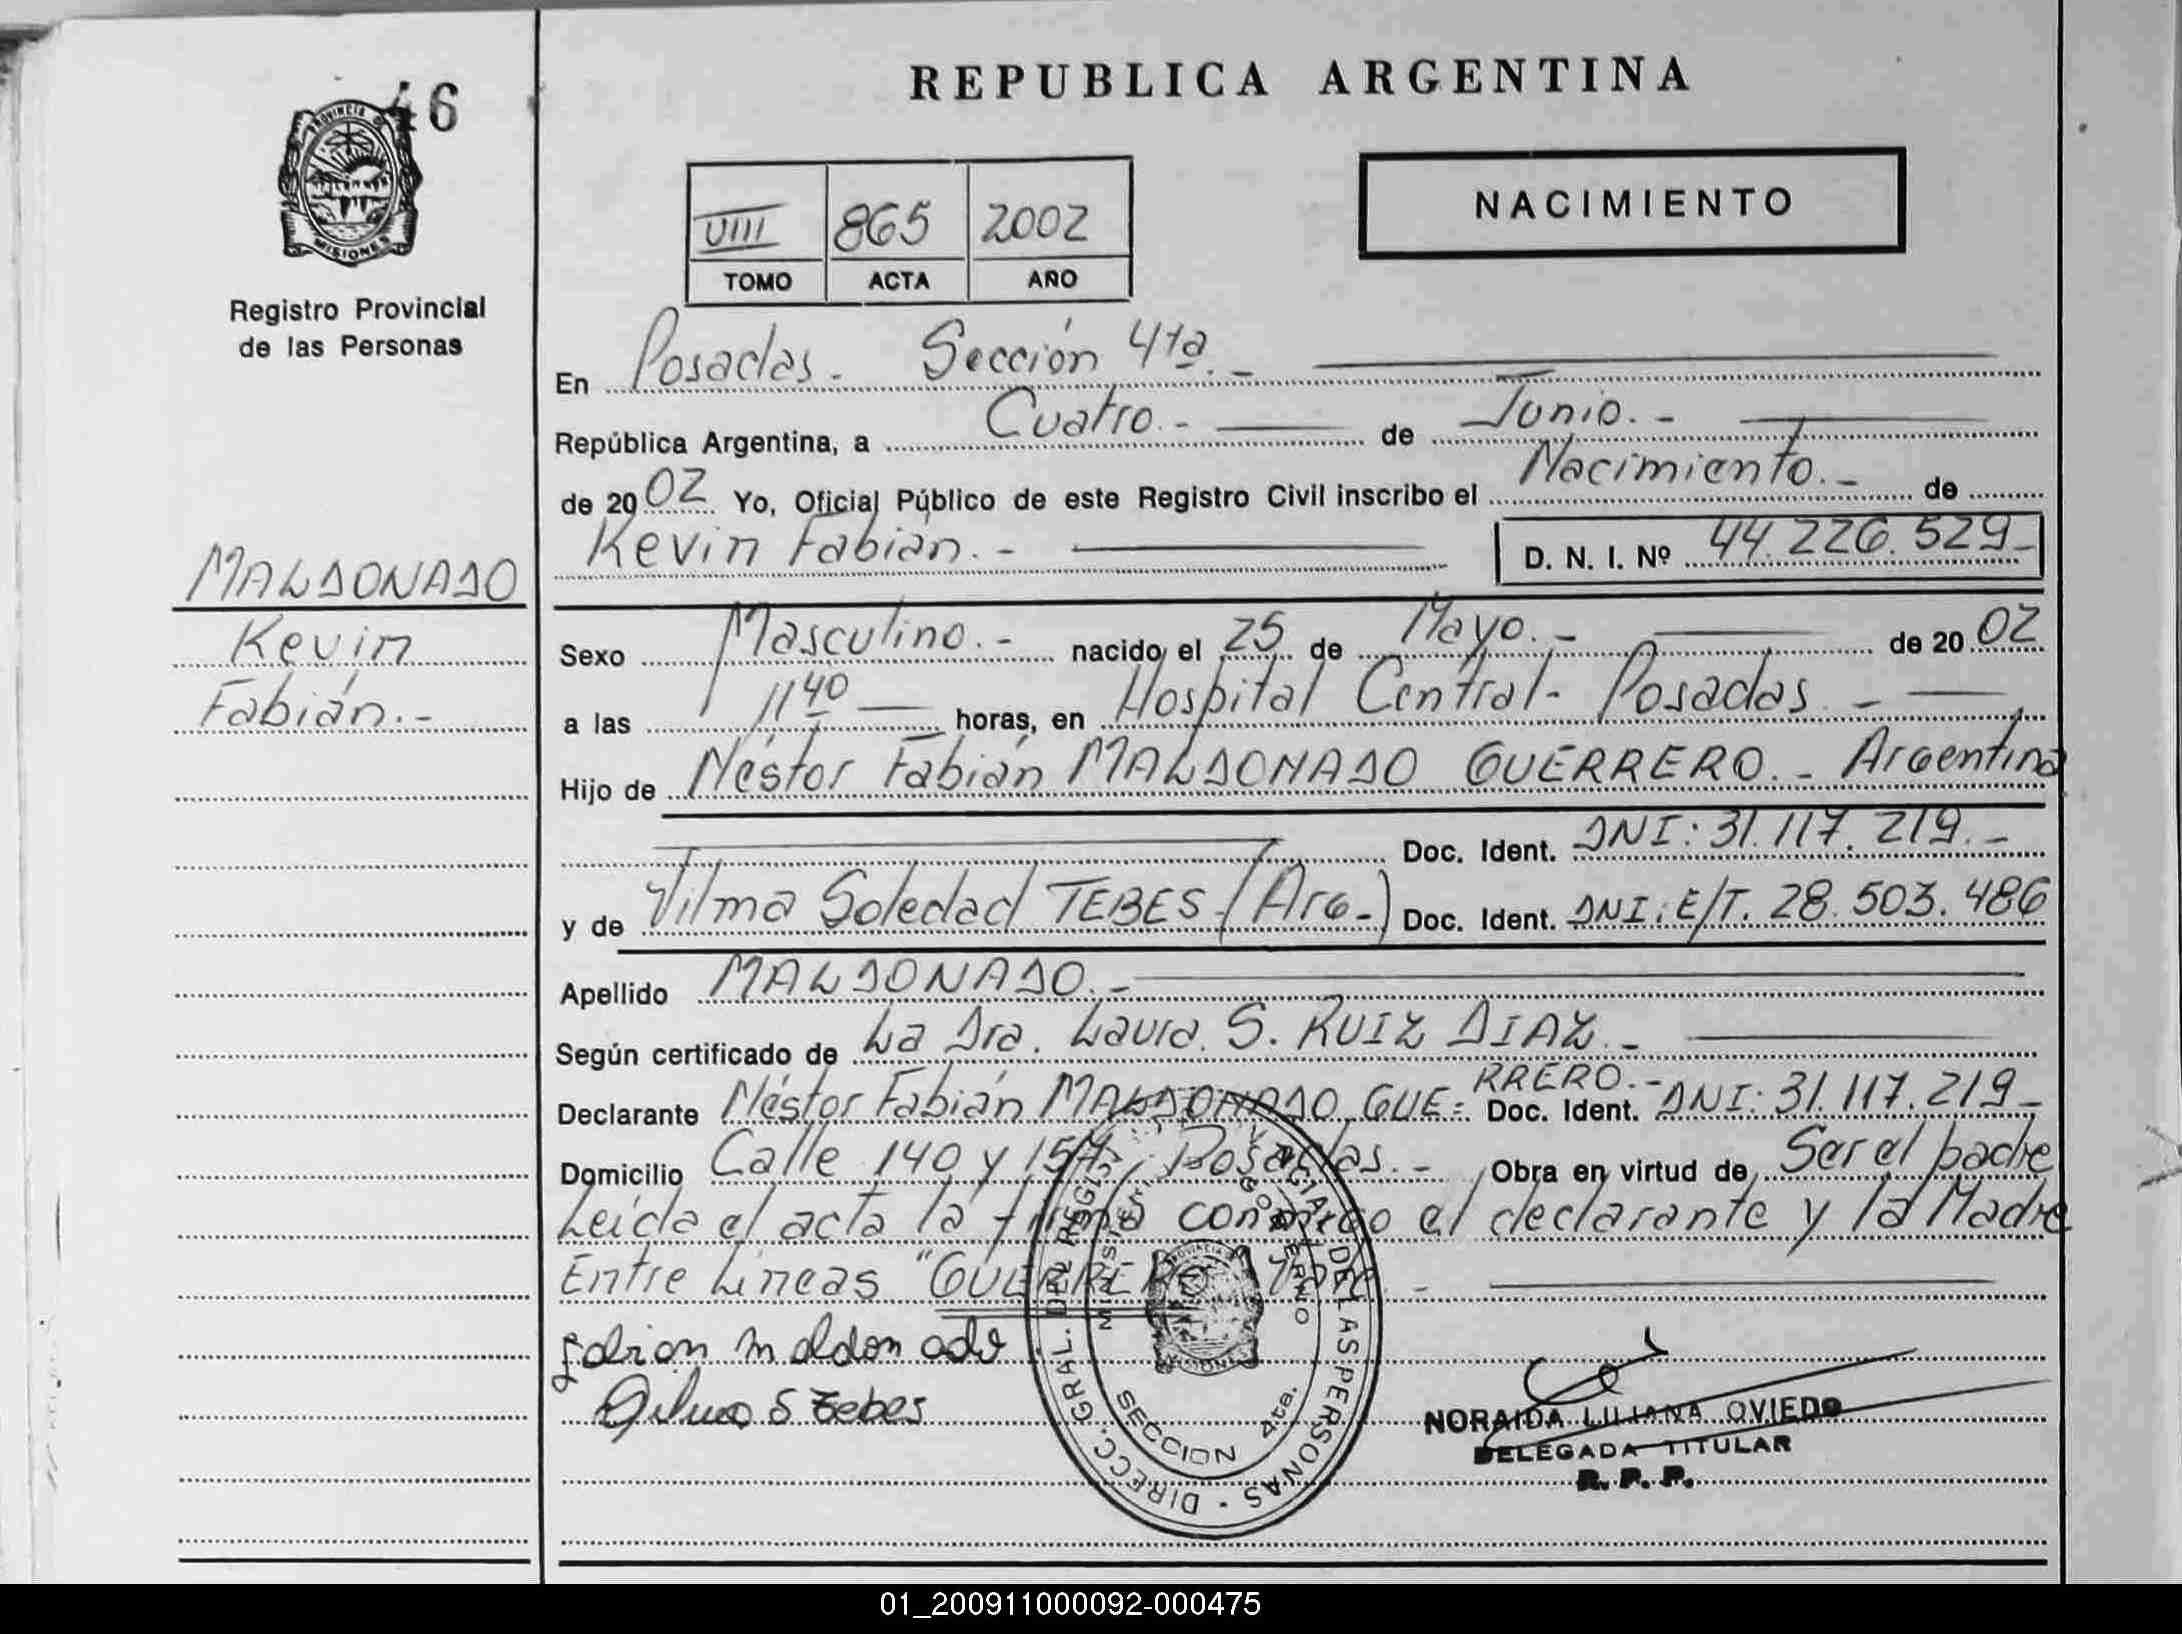 46
REPUBLICA ARGENTINA
PROVINCIA DE
MISIONES
Registro Provincial
de las Personas
VIII 865 2002
TOMO ACTA AÑO
NACIMIENTO
En Posadas.- Sección 4ta.-
República Argentina, a Cuatro.- de Junio.-
de 2002 Yo, Oficial Público de este Registro Civil inscribo el Nacimiento.- de
Kevin Fabián.- D. N. I. Nº 44.226.529-
MALDONADO
Kevin
Fabián.-
Sexo Masculino.- nacido el 25 de Mayo.- de 2002
a las 11 40 horas, en Hospital Central- Posadas.-
Hijo de Néstor Fabián MALDONADO GUERRERO.- Argentina
Doc. Ident. DNI: 31.117.219.-
y de Vilma Soledad TEBES.(Arg.-) Doc. Ident. DNI: E/T. 28.503.486
Apellido MALDONADO.-
Según certificado de La Dra. Laura. S. RUIZ DIAZ.-
RRERO.-
Declarante Néstor Fabián MALDONADO GUE= Doc. Ident. DNI: 31.117.219-
Domicilio Calle 140 y 157, Posadas.- Obra en virtud de Ser el padre
Leída el acta la firma conmigo el declarante y la Madre
Entre Lineas "GUERRERO" Vale.-
fabian maldonado
Vilma S tebes
DIRECC. GRAL. DEL REGIST. PROVINCIAL DE LAS PERSONAS -
MINISTERIO GOBIERNO
PROVINCIA DE
MISIONES
SECCION 4ta.
NORAIDA LILIANA OVIEDO
DELEGADA TITULAR
R. P. P.
01_200911000092-000475